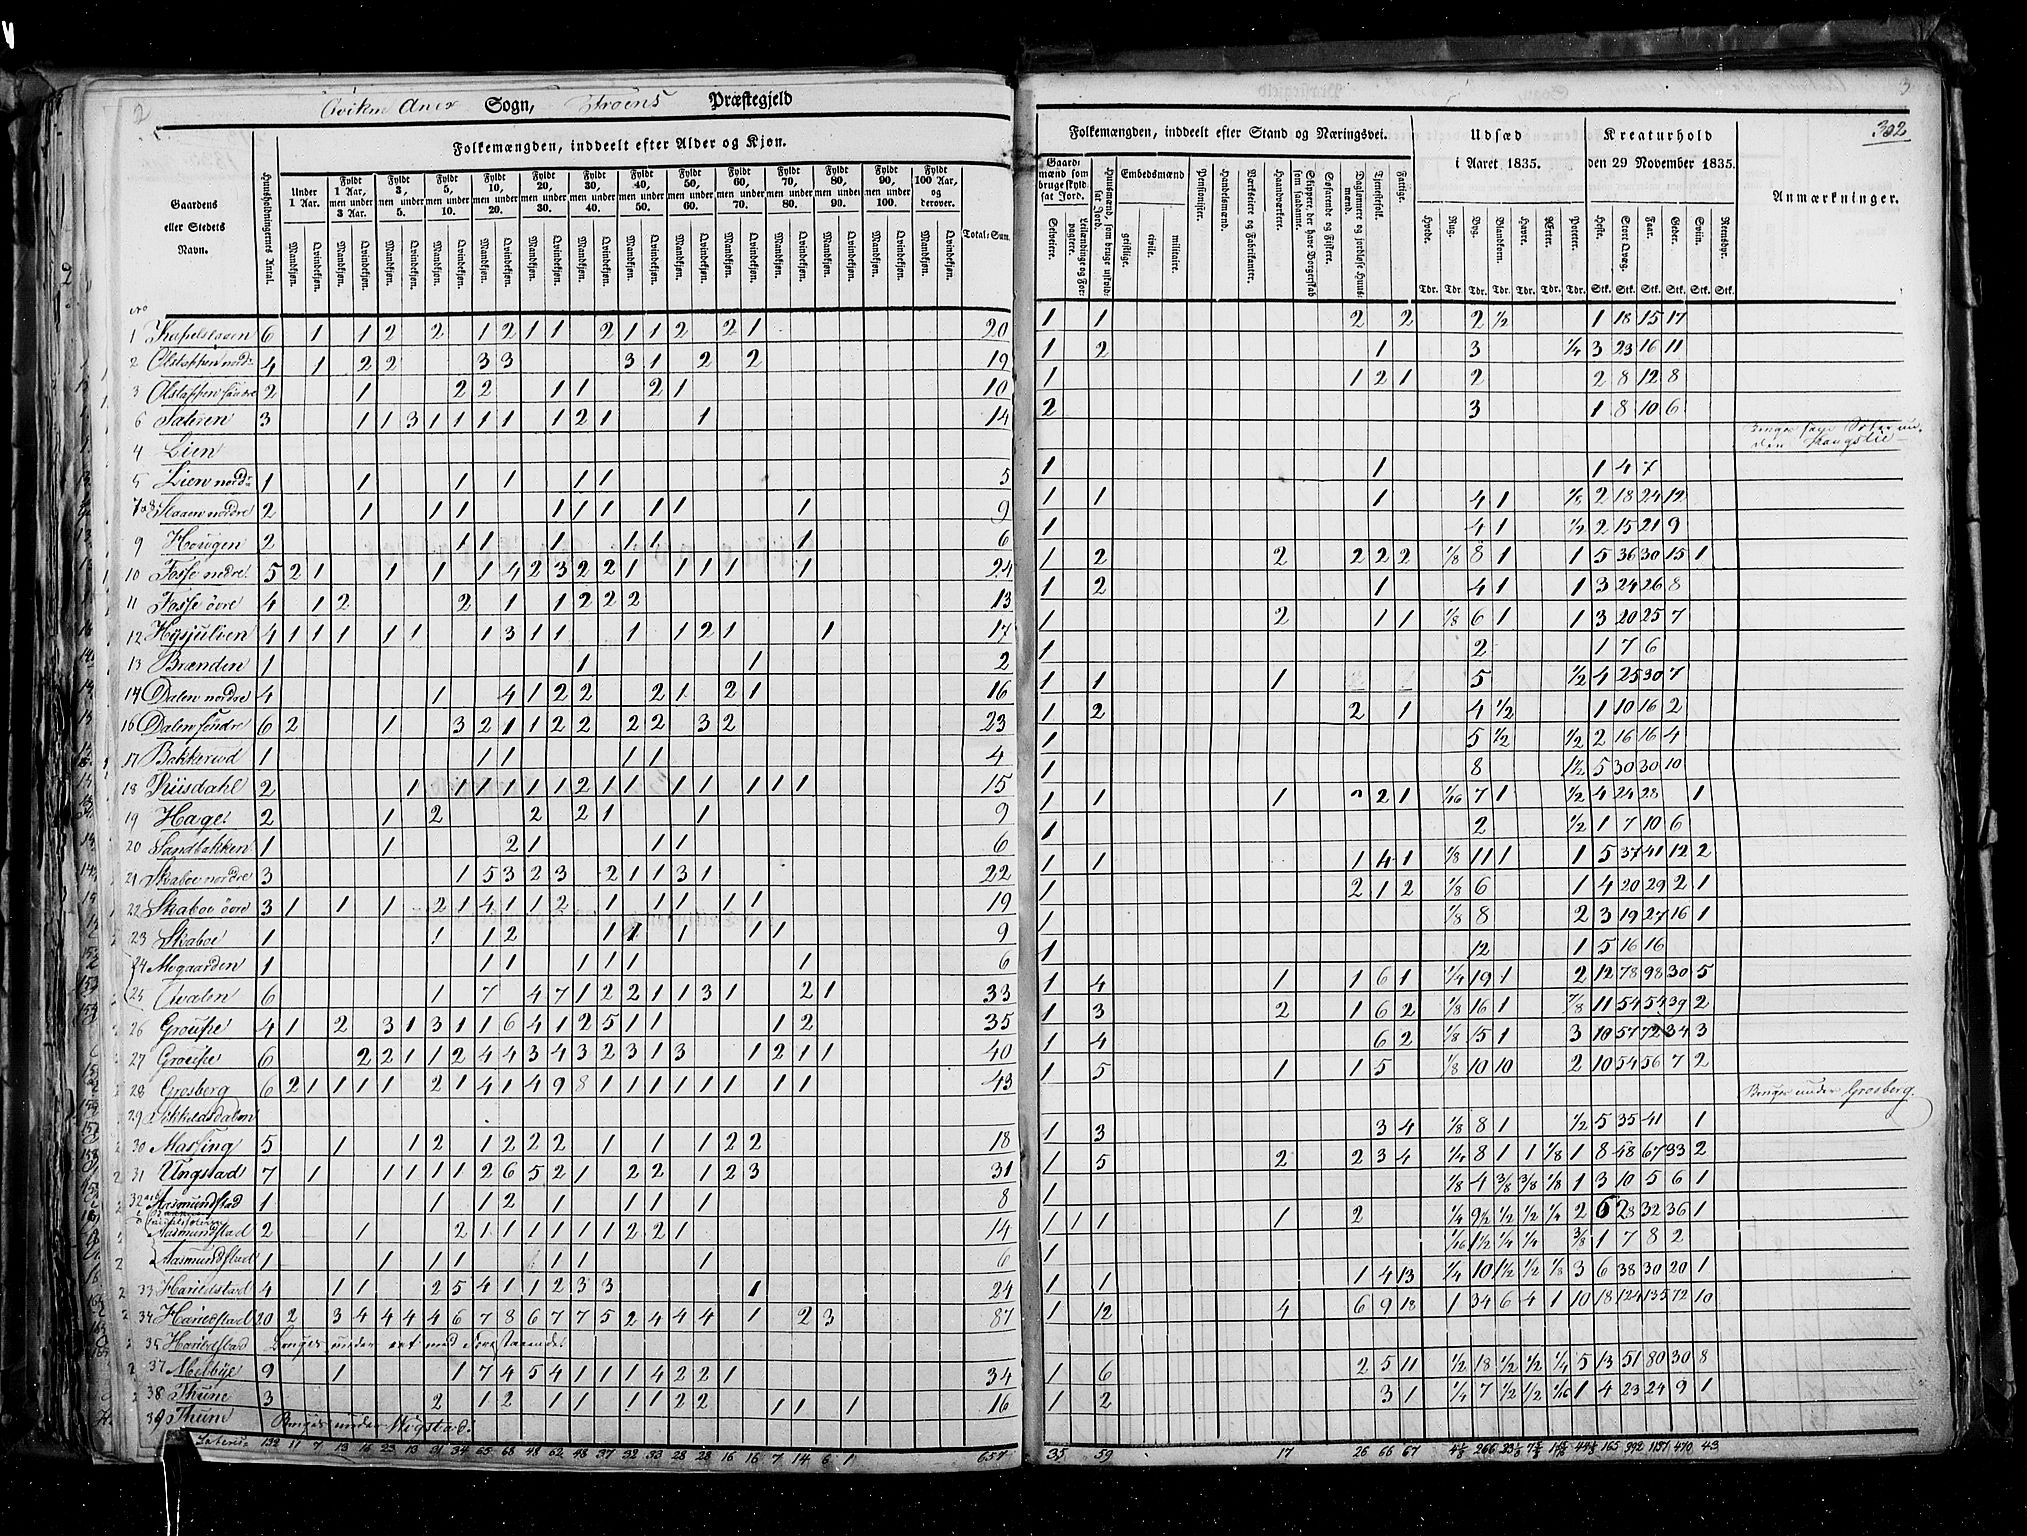 2 Qvikne Anex Sogn, Froens Præstegjeld
3
302
Folkemængden, inddeelt efter Alder og Kjøn.
Folkemængden, inddeelt efter Stand og Næringsvei.
Udsæd i Aaret 1835.
Kreaturhold den 29 November 1835.
Anmærkninger.
Gaardens eller Stedets Navn.
Huusholdningernes Antal.
Under 1 Aar.
Fyldt 1 Aar, men under 3 Aar.
Fyldt 3, men under 5.
Fyldt 5, men under 10.
Fyldt 10, men under 20.
Fyldt 20, men under 30.
Fyldt 30, men under 40.
Fyldt 40, men under 50.
Fyldt 50, men under 60.
Fyldt 60, men under 70.
Fyldt 70, men under 80.
Fyldt 80, men under 90.
Fyldt 90, men under 100.
Fyldt 100 Aar, og derover.
Mandkjøn. Qvindekjøn.
Total-Sum.
Gaardmænd som bruge skyldsat Jord.
Selveiere.
Leilændinge og Forpagtere.
Huusmænd, som bruge uskyldsat Jord.
Embedsmænd
geistlige. civile. militaire.
Pensionister.
Handelsmænd.
Værkseiere og Fabrikanter.
Haandværkere.
Skippere, der have Borgerskab som saadanne.
Søfarende og Fiskere.
Daglønnere og jordløse Huusmænd.
Tjenestefolk.
Fattige.
Hvede. Rug. Byg. Blandkorn. Havre. Erter. Poteter.
Tdr. Tdr. Tdr. Tdr. Tdr. Tdr. Tdr.
Heste. Stort Qvæg. Faar. Geder. Sviin. Rensdyr.
Stk. Stk. Stk. Stk. Stk. Stk.
No
1 Kapelslaaen 6 1 1 2 2 1 2 1 1 2 1 1 2 2 1 20
2 Olstappen nord: 4 1 2 2 3 3 3 1 2 2 19
3 Olstappen søndre 2 1 2 2 1 1 2 1 10
6 Sateren 3 1 1 3 1 1 1 1 1 2 1 1 14
4 Lien
5 Lien nord: 1 1 1 1 1 1 5
7 & 8 Slaaen nordre 2 1 1 1 1 1 1 1 1 1 9
9 Hougen 2 1 1 1 1 1 1 6
10 Fosse nedre 5 2 1 1 1 1 4 2 3 2 2 1 1 1 1 1 24
11 Fosse övre 4 1 2 2 1 1 2 2 2 13
12 Høgsjulien 4 1 1 1 1 1 1 3 1 1 1 1 2 1 1 17
13 Brænden 1 1 1 2
14 Dalen nordre 4 1 4 1 2 2 2 1 2 1 16
16 Dalen søndre 6 2 1 3 2 1 1 2 2 2 2 3 2 23
17 Bakkerud 1 1 1 1 1 4
18 Riisdahl 2 1 1 1 1 1 1 2 1 1 1 1 1 1 1 15
19 Hage 2 1 2 2 2 1 1 9
20 Sandbakken 1 1 2 1 1 1 6
21 Skaboe nordre 3 1 5 3 2 3 2 1 1 3 1 22
22 Skaboe övre 3 1 1 1 2 1 4 1 1 2 1 1 1 1 1 19
23 Skaboe 1 1 1 2 1 1 1 1 1 9
24 Megaarden 1 1 1 1 1 1 1 6
25 Qvalen 6 1 7 4 7 1 2 2 1 1 3 1 2 1 33
26 Groupe 4 1 2 3 1 3 1 1 6 4 1 2 5 1 1 1 2 35
27 Groupe 6 2 2 1 1 2 4 4 3 4 3 2 3 1 3 1 2 1 1 40
28 Grosberg 6 2 1 1 1 2 1 4 1 4 9 8 1 1 1 1 1 1 1 1 43
30 Massing 5 1 1 2 1 2 2 2 1 1 1 2 2 18
31 Ungstad 7 1 1 1 1 1 2 6 5 2 1 2 2 1 2 3 31
32 Aasmundstad 1 1 1 2 1 1 1 1 8
Aasmundstad 2 1 2 1 1 1 1 1 2 2 1 14
Aasmundstad 1 1 1 1 1 1 1 6
33 Harildstad 4 1 1 2 5 4 1 1 2 3 3 1 24
34 Harildstad 20 2 3 4 4 4 4 6 7 8 6 7 7 5 2 4 4 4 1 2 3 87
35 Harildstad Bruges under eet med Forestaaende.
37 Melbye 9 1 1 7 4 5 4 1 1 1 4 2 2 1 34
38 Thune 3 2 1 2 1 1 1 1 2 2 1 1 1 16
39 Thune Bruges under
Lateris 132 11 7 13 16 23 13 31 34 65 68 48 62 48 37 32 33 28 28 16 16 7 14 6 1 657
1 1 2 2 2 ½ 1 18 15 17
1 2 1 3 ¼ 3 23 16 11
1 1 2 1 2 2 8 12 8
2 3 1 8 10 6
1 1 1 4 7
1 1 1 4 1 ⅛ 2 18 24 12
1 4 1 ½ 2 15 21 9
1 2 2 2 2 2 ⅛ 8 1 1 5 36 30 15 1
1 2 1 4 1 1 3 24 26 8
1 2 1 1 ⅛ 6 1 1 3 20 25 7
1 2 1 7 6
1 1 1 5 ½ 4 25 30 7
1 2 2 1 4 ½ 1 10 16 2
1 5 ½ ½ 2 16 16 4
1 8 1½ 5 30 30 10
1 1 1 2 2 1 1/16 7 1 ½ 4 24 28 1
1 2 ½ 1 7 10 6
1 1 1 4 1 ⅛ 11 1 1 5 37 41 12 2
1 2 1 2 ⅛ 6 1 4 20 29 2 1
1 ⅛ 8 2 3 19 27 16 1
1 12 1 5 16 16
1 4 1 1 6 1 ¼ 19 1 2 12 78 98 30 5
1 3 2 1 6 2 ⅛ 16 1 ⅞ 11 54 54 39 2
1 4 6 2 ⅛ 15 1 3 10 57 72 34 3
1 5 1 1 5 ⅛ 10 10 2 10 54 56 7 2
Bruges under Grosberg.
1 3 3 4 ⅛ 8 1 ½ 5 35 41 1
1 5 2 2 3 4 ¼ 8 1 1 ⅛ 1 8 48 67 33 2
1 ⅛ 4 ⅜ ⅜ ⅛ 1 3 10 5 6 1
1 1 1 1 2 ¼ 9½ ½ ½ ¼ 2 6 28 32 36 1
1 1/16 1½ ¼ ¼ ⅜ 1 7 8 2
1 1 1 4 13 ¼ 10 1½ ½ ⅛ 3 6 38 30 20 1
1 12 4 6 9 18 1 34 6 4 1 10 18 124 135 72 10
1 6 2 5 11 ½ 18 ½ ½ ¼ 5 13 51 80 30 8
1 2 3 1 ¼ 7 ½ ½ 1/16 1 4 23 24 9 1
35 59 17 26 66 67 266 165 992 1157 470 43